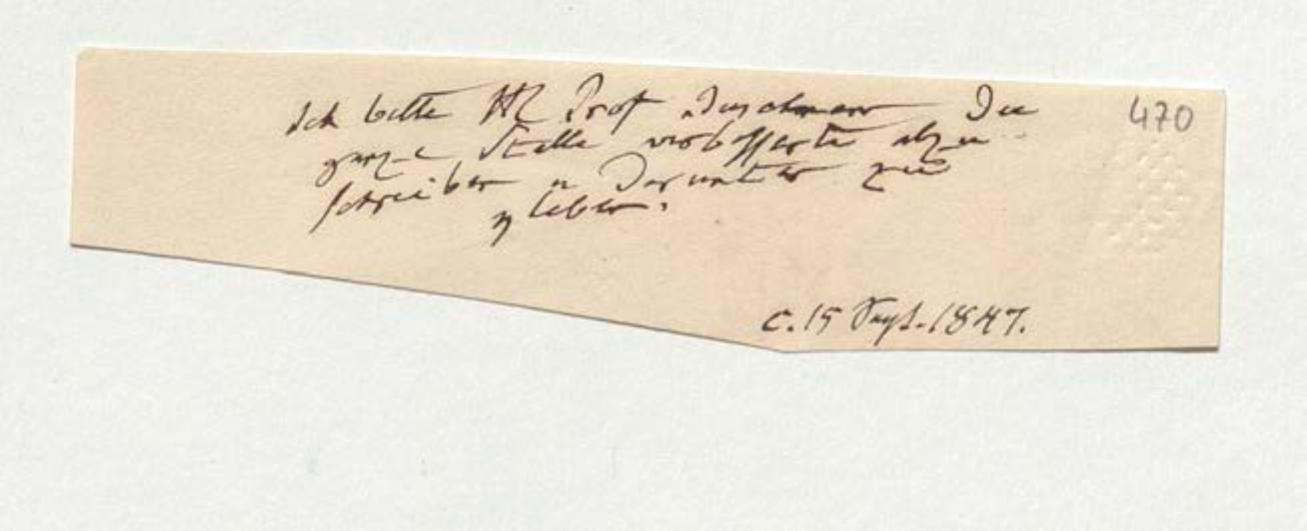 Ich bitte HE Prof Buschmann die
470
ganze Stelle verbesserte abzu
schreiben u darunter zu
kleben.
c. 15 Sept. 1847.